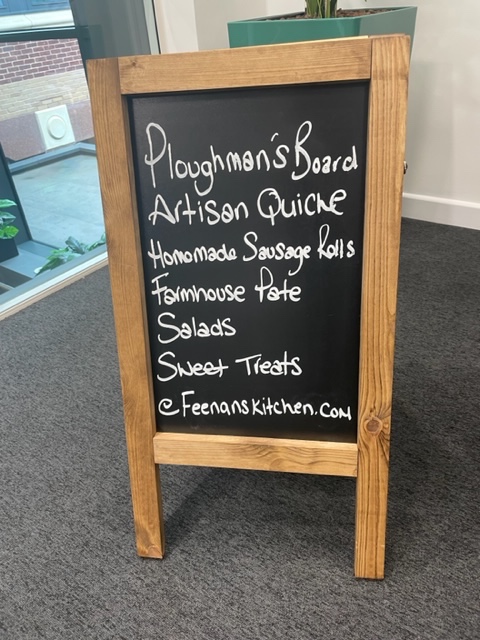 Ploughman's Board
Artisan Quiche
Homomade Sausage Rolls
Farmhouse Pate
Salads
Sweet Treats
@FeenansKitchen.com